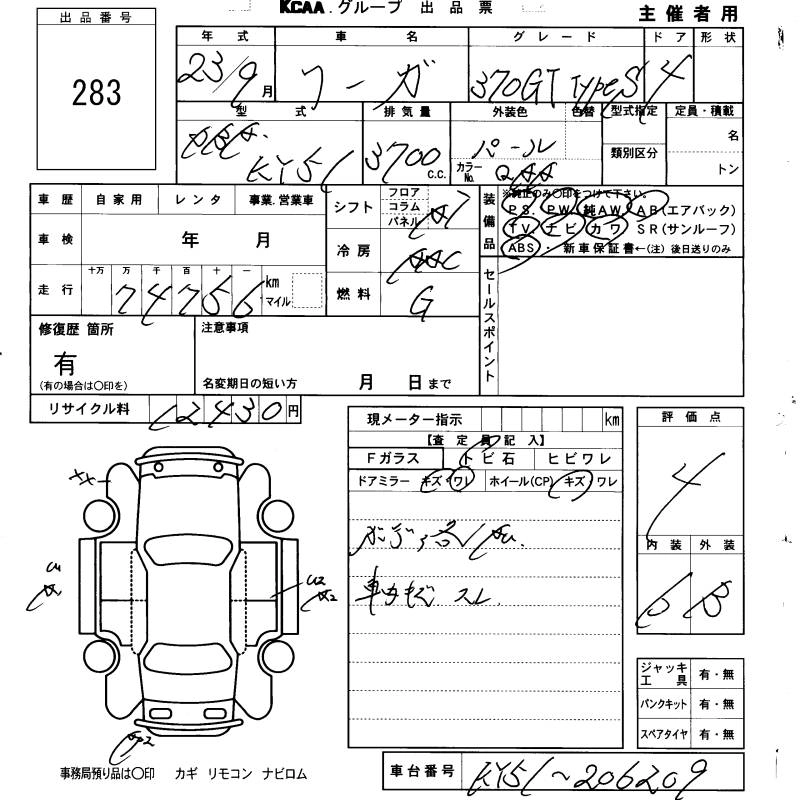 KCAA.グループ 出品票
主催者用
出品番号
283
年式 車名 グレード ドア 形状
23/9月 フーガ 370GT TypeS 4
型式 排気量 外装色 色替 型式指定 定員・積載
DBA-KY51 3700 C.C. パール 類別区分 名
カラーNo. QAA トン
車歴 自家用 レンタ 事業.営業車
シフト フロア コラム パネル A7
車検 年 月
冷房 AAC
走行 十万 万 千 百 十 一
74756 km マイル
燃料 G
装備品
※純正のみ〇印をつけて下さい。
PS. PW 純AW. AB(エアバック)
TV. ナビ カワ SR(サンルーフ)
ABS・新車保証書←(注)後日送りのみ
セールスポイント
修復歴 箇所
有
(有の場合は〇印を)
注意事項
名変期日の短い方 月 日まで
リサイクル料 12430円
現メーター指示 km
【査定員記入】
Fガラス トビ石 ヒビワレ
ドアミラー キズ ワレ ホイール(CP) キズ ワレ
スレ
評価点
4
内装 外装
B B
XX
U1
A
U2
A2
ジャッキ工具 有・無
パンクキット 有・無
スペアタイヤ 有・無
事務局預り品は〇印 カギ リモコン ナビロム
車台番号 KY51-206209